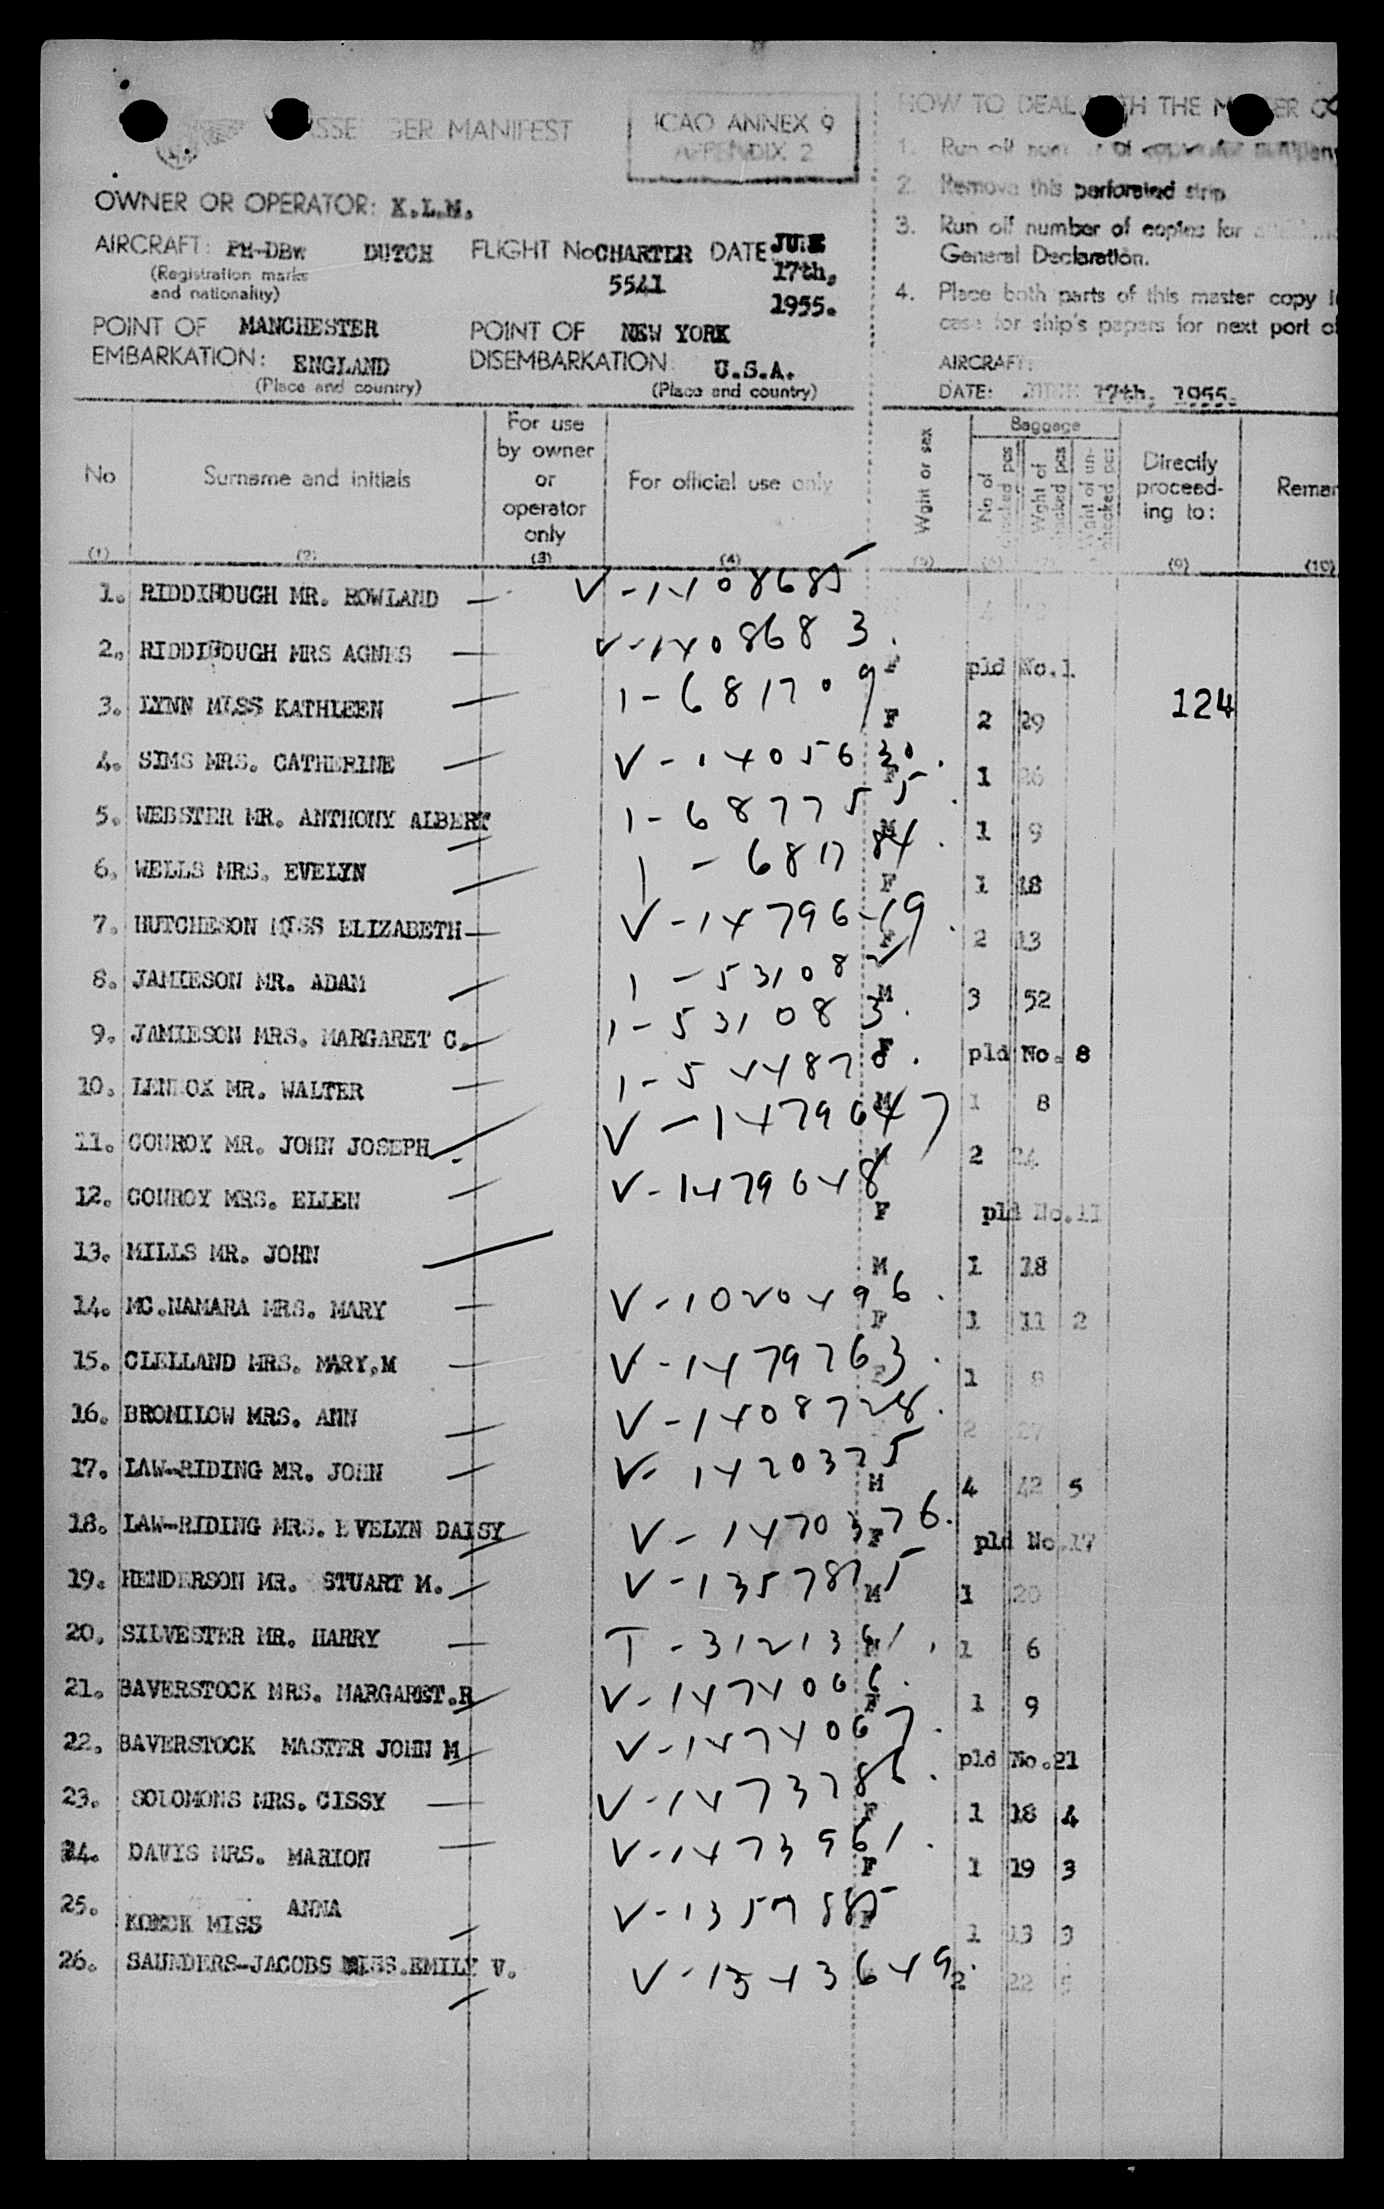 PASSENGER MANIFEST
ICAO ANNEX 9
APPENDIX 2
OWNER OR OPERATOR: K.L.M.
AIRCRAFT: PH-DBW DUTCH FLIGHT No CHARTER 5541 DATE JUNE 17th, 1955.
(Registration marks
and nationality)
POINT OF EMBARKATION: MANCHESTER ENGLAND
(Place and country)
POINT OF DISEMBARKATION: NEW YORK U.S.A.
(Place and country)
HOW TO DEAL WITH THE MASTER CO
1. Run off number of copies for company
2. Remove this perforated strip
3. Run off number of copies for
General Declaration.
4. Place both parts of this master copy i
case for ship's papers for next port o
AIRCRAFT:
DATE: JUNE 17th, 1955.
No (1)
Surname and initials (2)
For use by owner or operator only (3)
For official use only (4)
Wght or sex (5)
Baggage
No of checked pcs (6)
Wght of checked pcs (7)
Wght of un-checked pcs
Directly proceed-ing to: (9)
Remar (10)
1. RIDDIHOUGH MR. ROWLAND — V-1408685
2. RIDDIHOUGH MRS AGNES — V-1408683. F pld No.1
3. LYNN MISS KATHLEEN — 1-681709 F 2 29 124
4. SIMS MRS. CATHERINE — V-1405630. F 1 26
5. WEBSTER MR. ANTHONY ALBERT — 1-687755. M 1 9
6. WELLS MRS. EVELYN — 1-681784. F 1 18
7. HUTCHESON MISS ELIZABETH — V-1479649. F 2 13
8. JAMIESON MR. ADAM — 1-531082 M 3 52
9. JAMIESON MRS. MARGARET C. — 1-531083. F pld No. 8
10. LENNOX MR. WALTER — 1-544878. M 1 8
11. CONROY MR. JOHN JOSEPH — V-1479647 M 2 24
12. CONROY MRS. ELLEN — V-1479648 F pld No.11
13. MILLS MR. JOHN — M 1 18
14. MC.NAMARA MRS. MARY — V-1020496. F 1 11 2
15. CLELLAND MRS. MARY.M — V-1479763. F 1 8
16. BROMILOW MRS. ANN — V-1408728. 2 27
17. LAW-RIDING MR. JOHN — V-1420375 M 4 42 5
18. LAW-RIDING MRS. EVELYN DAISY — V-1470376. F pld No.17
19. HENDERSON MR. STUART M. — V-1357875 M 1 20
20. SILVESTER MR. HARRY — T-3121361. M 1 6
21. BAVERSTOCK MRS. MARGARET.R — V-1474066. F 1 9
22. BAVERSTOCK MASTER JOHN M — V-1474067. pld No.21
23. SOLOMONS MRS. CISSY — V-1473786. F 1 18 4
24. DAVIS MRS. MARION — V-1473961. F 1 19 3
25. MISS ANNA — V-1357885 F 1 13 3
26. SAUNDERS-JACOBS MISS.EMILY V. — V-1543649. 2 22 5